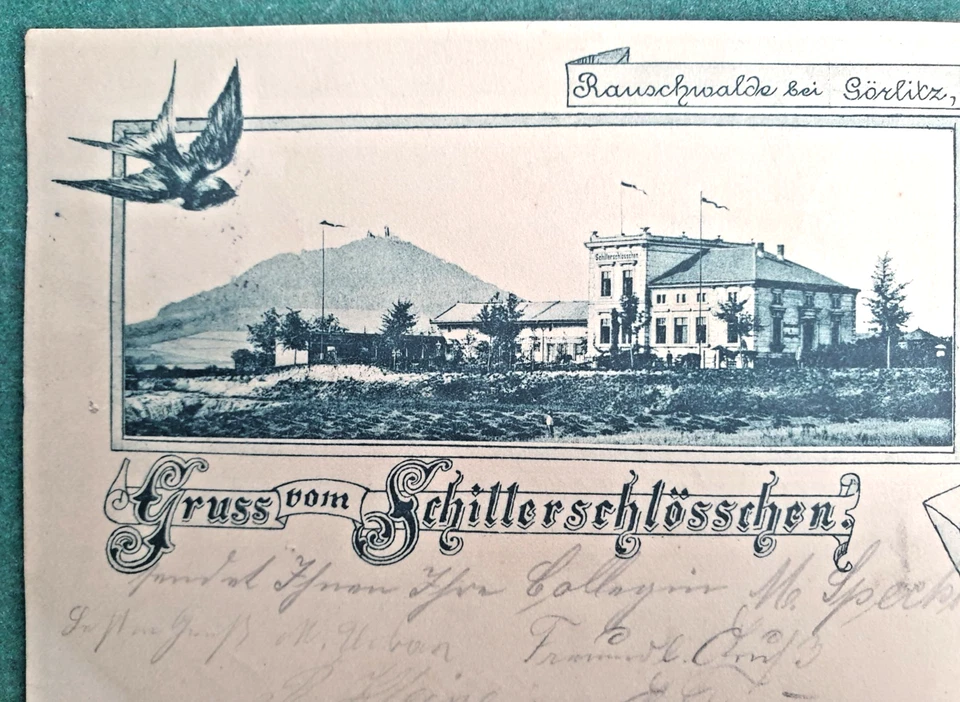 Rauschwalde bei Görlitz,
Schillerschlösschen
Gruss vom Schillerschlösschen.
sendet Ihnen Ihre Collegin M.
Gruß M. Urban Freundl. Gruß